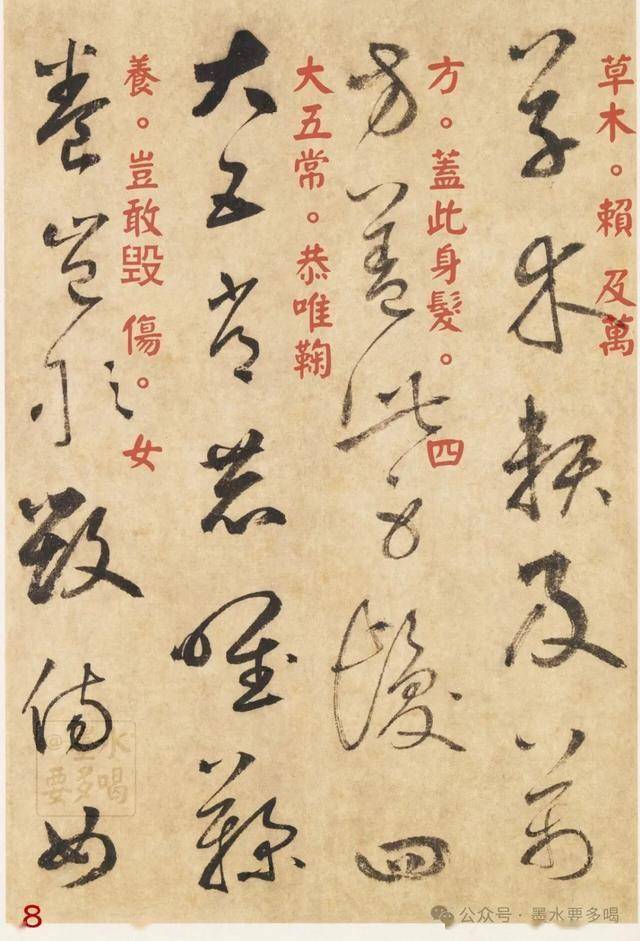 草木賴及萬
草木。賴及萬
方蓋此身髮四
方。蓋此身髮。四
大五常恭惟鞠
大五常。恭唯鞠
養豈敢毀傷女
養。豈敢毀傷。女
@墨水
要多喝
8
公众号·墨水要多喝